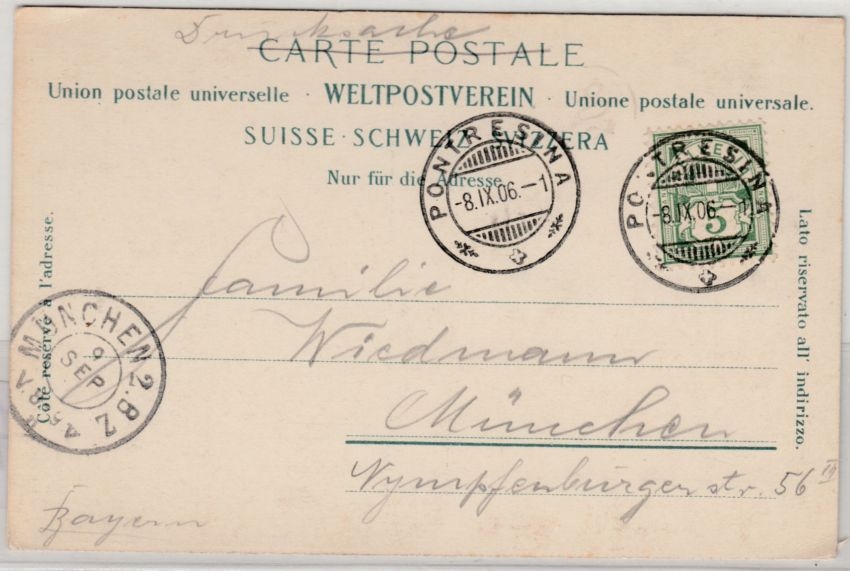 Drucksache
CARTE POSTALE
Union postale universelle · WELTPOSTVEREIN · Unione postale universale.
SUISSE · SCHWEIZ SVIZZERA
Nur für die Adresse
PONTRESINA
-8.IX.06.-1
PONTRESINA
-8.IX.06.-1
5
Côté réservé à l'adresse.
Lato riservato all' indirizzo.
MÜNCHEN 2.B.Z.
9
SEP
Familie
Wiedmann
München
Nympfenburgerstr. 56 III
Bayern